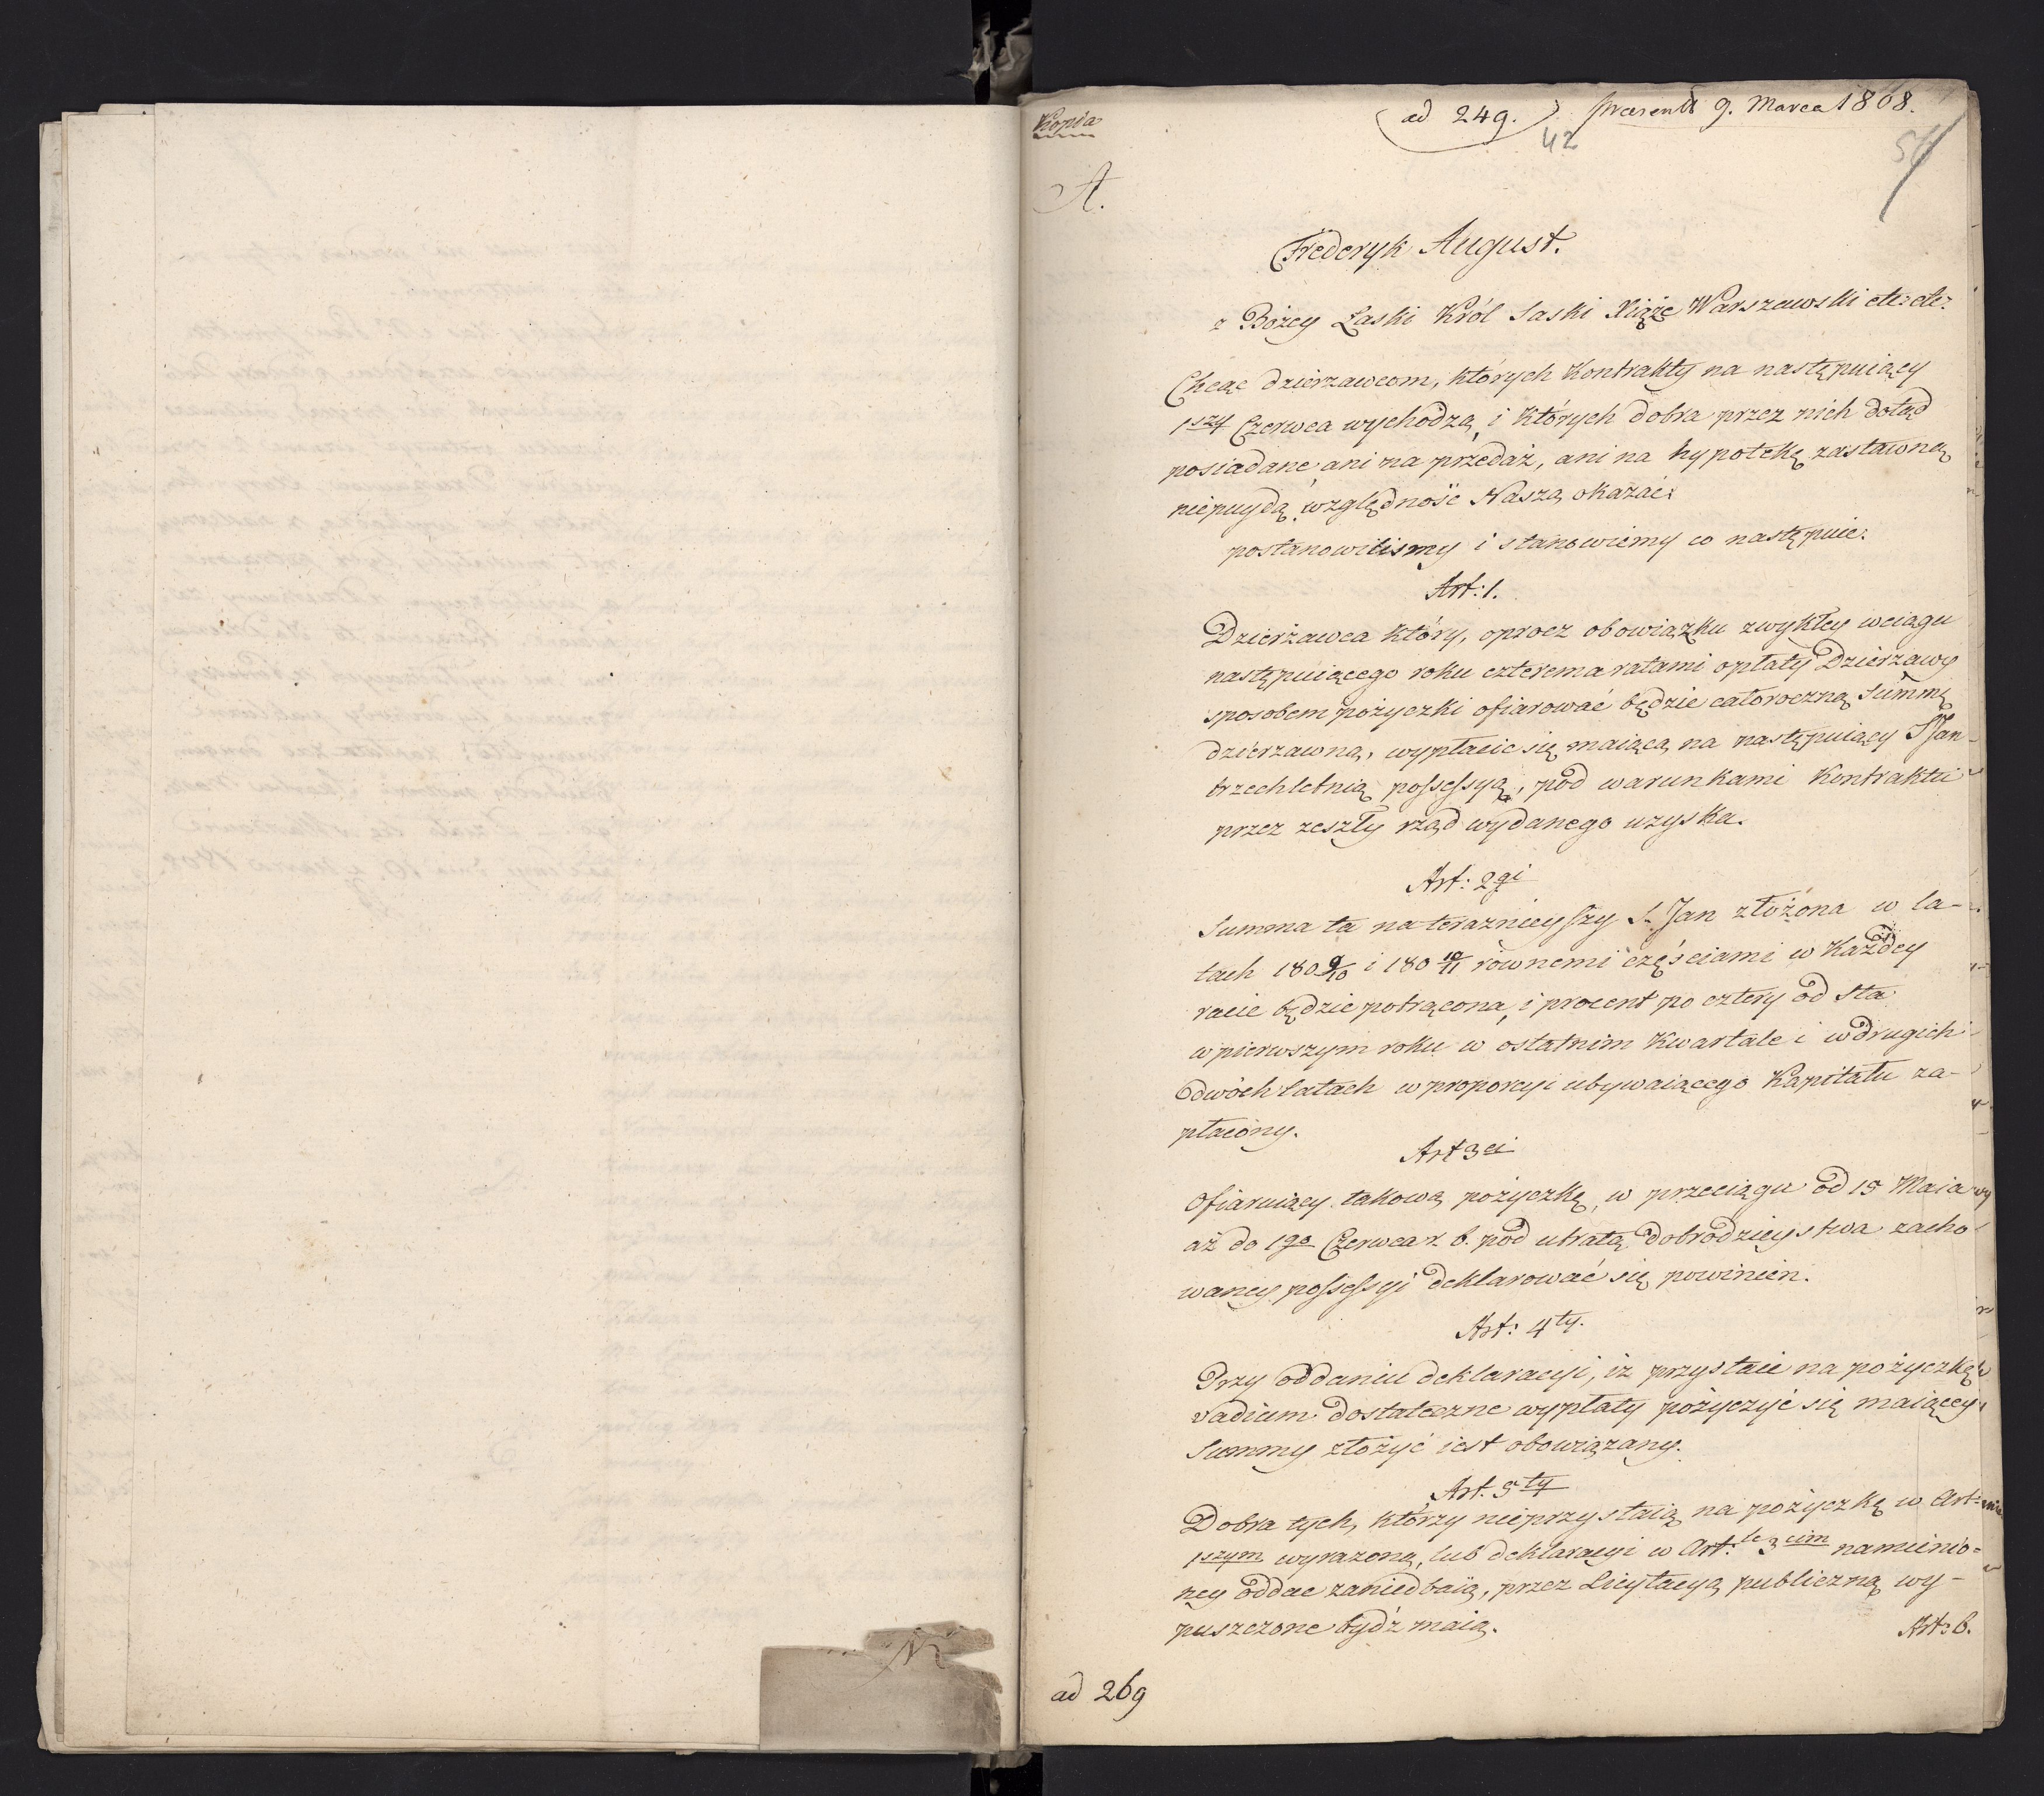 Kopia
(ad 249.) Praesentt 9. Marca 1808.
42
A.
Fréderyk August.
z Bożey Łaski Król Saski Xiąże Warszawski etc: etc:
Chcąc dzierzawcom, których Kontrakty na następuiący
1szy Czerwca wychodzą, i których dobra przez nich dotąd
posiadane, ani na przedaż, ani na hypotekę zastawną
niepuydą, względność Naszą okazać:
postanowilismy i stanowiemy co następuie:
Art: 1.
Dzierżawca który, oprocz obowiązku zwykłey wciągu
następuiącego roku czterema ratami opłaty Dzierzawy
sposobem pożyczki ofiarować będzie całoroczną Summę
dzierzawną, wypłacic się maiącą na następuiący S Jan
trzechletnią possessyą, pod warunkami Kontraktu
przez zeszły rząd wydanego uzyska.
Art: 2gi
Summa ta na teraznieyszy S. Jan złożona w la-
tach 180 9/10 i 180 10/11 równemi częściami w Każdey
racie będzie potrącona, i procent po cztery od sta
w pierwszym roku w ostatnim Kwartale i w drugich
dwóch latach w proporcyi ubywaiącego Kapitału za-
płacony.
Art 3ci
Ofiaruiący takową pożyczkę, w przeciągu od 15 Maia
aż do 1go Czerwca r. b. pod utratą dobrodzieystwa zacho
waney possessyi deklarować się powinien.
Art: 4ty.
Przy oddaniu deklaracyi, iż przystaie na pożyczkę
vadium dostateczne wypłaty pożyczyć się maiącey
Summy złożyć iest obowiązany.
Art. 5ty
Dobra tych, którzy nieprzystaią na pożyczkę w Art:
1szym wyrazoną, lub deklaracyi w Art:le 3cim namienio=
ney oddac zaniedbaią, przez Licytacyą publiczną wy-
puszczone bydź maią.
Art: 6.
ad 269